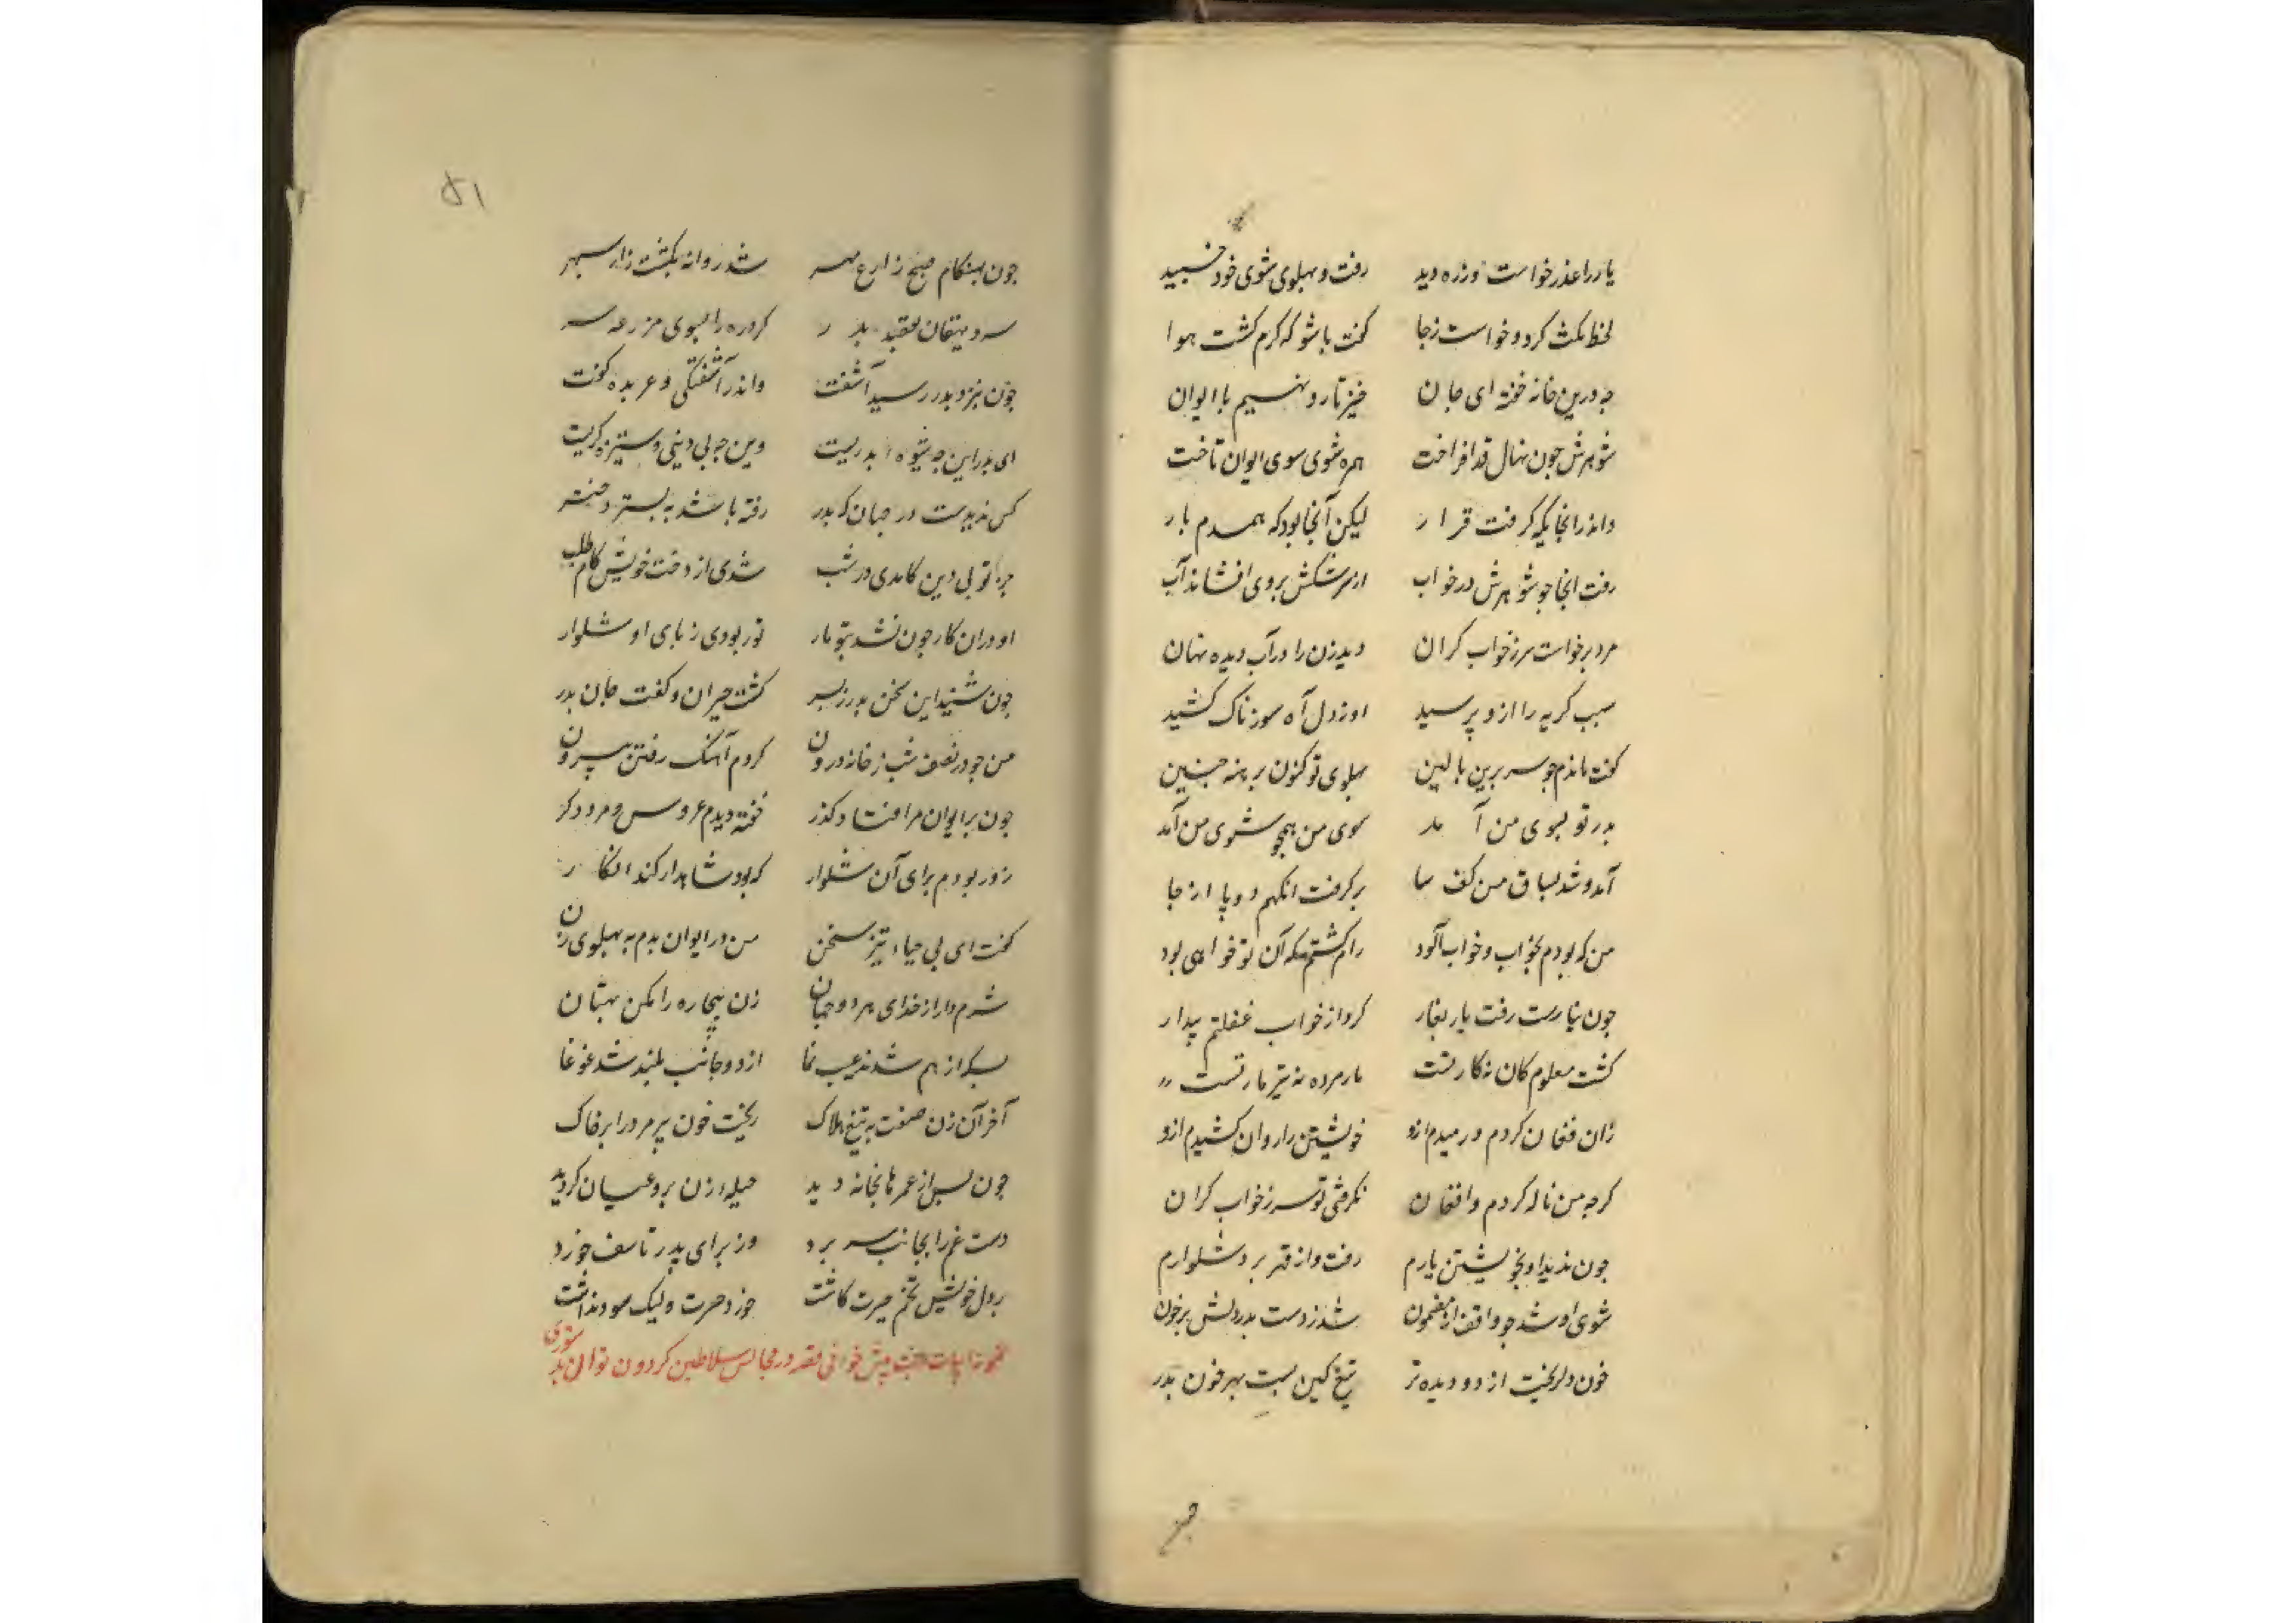 یار را عذر خواست وزره دید رفت و پهلوی شوی خود خسبید
لحظ مکث کرد و خواست زجا کفت باشو که کرم کشت هوا
جه درین خانه خفته ای جان خیز تا رو نهیم با ایوان
شوهرش جون نهال قد افراخت همره شوی سوی ایوان تاخت
واندرانجایکه کرفت قرار لیکن آنجا بود که همدم بار
رفت انجا جو شوهرش در خواب از سرشکش بروی افشاند آب
مرد برخواست سر زخواب کران دید زن را در آب دیده نهان
سبب کریه را ازو پرسید او زدل آه سوزناک کشید
کفت ماندم جو سر برین بالین پهلوی تو کنون برهنه جنین
بدر تو بسوی من آمد سوی من همجو شوی من آمد
آمد و شد بساق من کف سا برکرفت انکهم دو پا از جا
من که بودم بخواب و خواب آلود رام کشتم که آن تو خواهی بود
جون نیارست رفت یار بغار کرد از خواب غفلتم بیدار
کشت معلوم کان نه کار تست مار مرده نه تیز مار تست
زان فغان کردم و رمیدم ازو خویشتن را روان کشیدم ازو
کرجه من ناله کردم و افغان نکرفتی تو سر زخواب کران
جون ندید او بخویشتن یارم رفت و از قهر برد شلوارم
شوی او شد جو واقف از مضمون شد ز دست بدر دلش برخون
خون دل ریخت از دو دیده تر تیغ کین بست بهر خون بدر
جمـ
۵۱
جون بهنکام صبح زارع مهر شد روانه بکشت زار سپهر
سر دهقان بقید بدر کرد ره را بسوی مزرعه سر
جون بنزد بدر رسید آشفت واندر آشفتکی و عربده کفت
ای بدر این جه شیوه بدریست وین جه بی دینی و ستیزه کریست
کس ندیدست در جهان که بدر رفته باشد به بستر دختر
جز تو بی دین کامدی در شب شدی از دخت خویش کام طلب
او دران کار جون نشد بتو یار تو ربودی زبای او شلوار
جون شنید این سخن بدر زبسر کشت حیران و کفت جان بدر
من جو در نصف شب زخانه درون کردم آهنک رفتن بیرون
جون بر ایوان مرا فتاد کذر خفته دیدم عروس و مرد دکر
زو ربودم برای آن شلوار که بود شاهد ار کند انکار
کفت ای بی حیاء تیز سخن من در ایوان بدم به پهلوی زن
شرم دار از خدای هر دو جهان زن بیجاره را مکن بهتان
بسکه از هم شدند عیب نما از دو جانب بلند شد غوغا
آخر آن زن صفت به تیغ هلاک ریخت خون پیر مرد را بر خاک
جون بس از عمرها بخانه دید حیله زن برو عیان کردید
دست غم را بجانب سر برد وز برای پدر تاسف خورد
در دل خویش تخم حیرت کاشت خورد حسرت و لیک سود نداشت
بیت خوانی قصه در مجالس سلاطین کردون توان بد ستوری